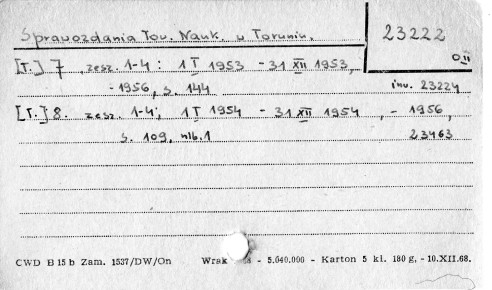 Sprawozdania Tow. Nauk. w Toruniu. 23222
O.II
[T.] 7, zesz. 1-4: 1 I 1953 - 31 XII 1953,
- 1956, s. 144 inw. 23224
[T.] 8. zesz. 1-4; 1 I 1954 - 31 XII 1954, - 1956,
s. 109, nlb. 1 23463
CWD B 15 b Zam. 1537/DW/On Wrak 68 - 5.040.000 - Karton 5 kl. 180 g, - 10.XII.68.